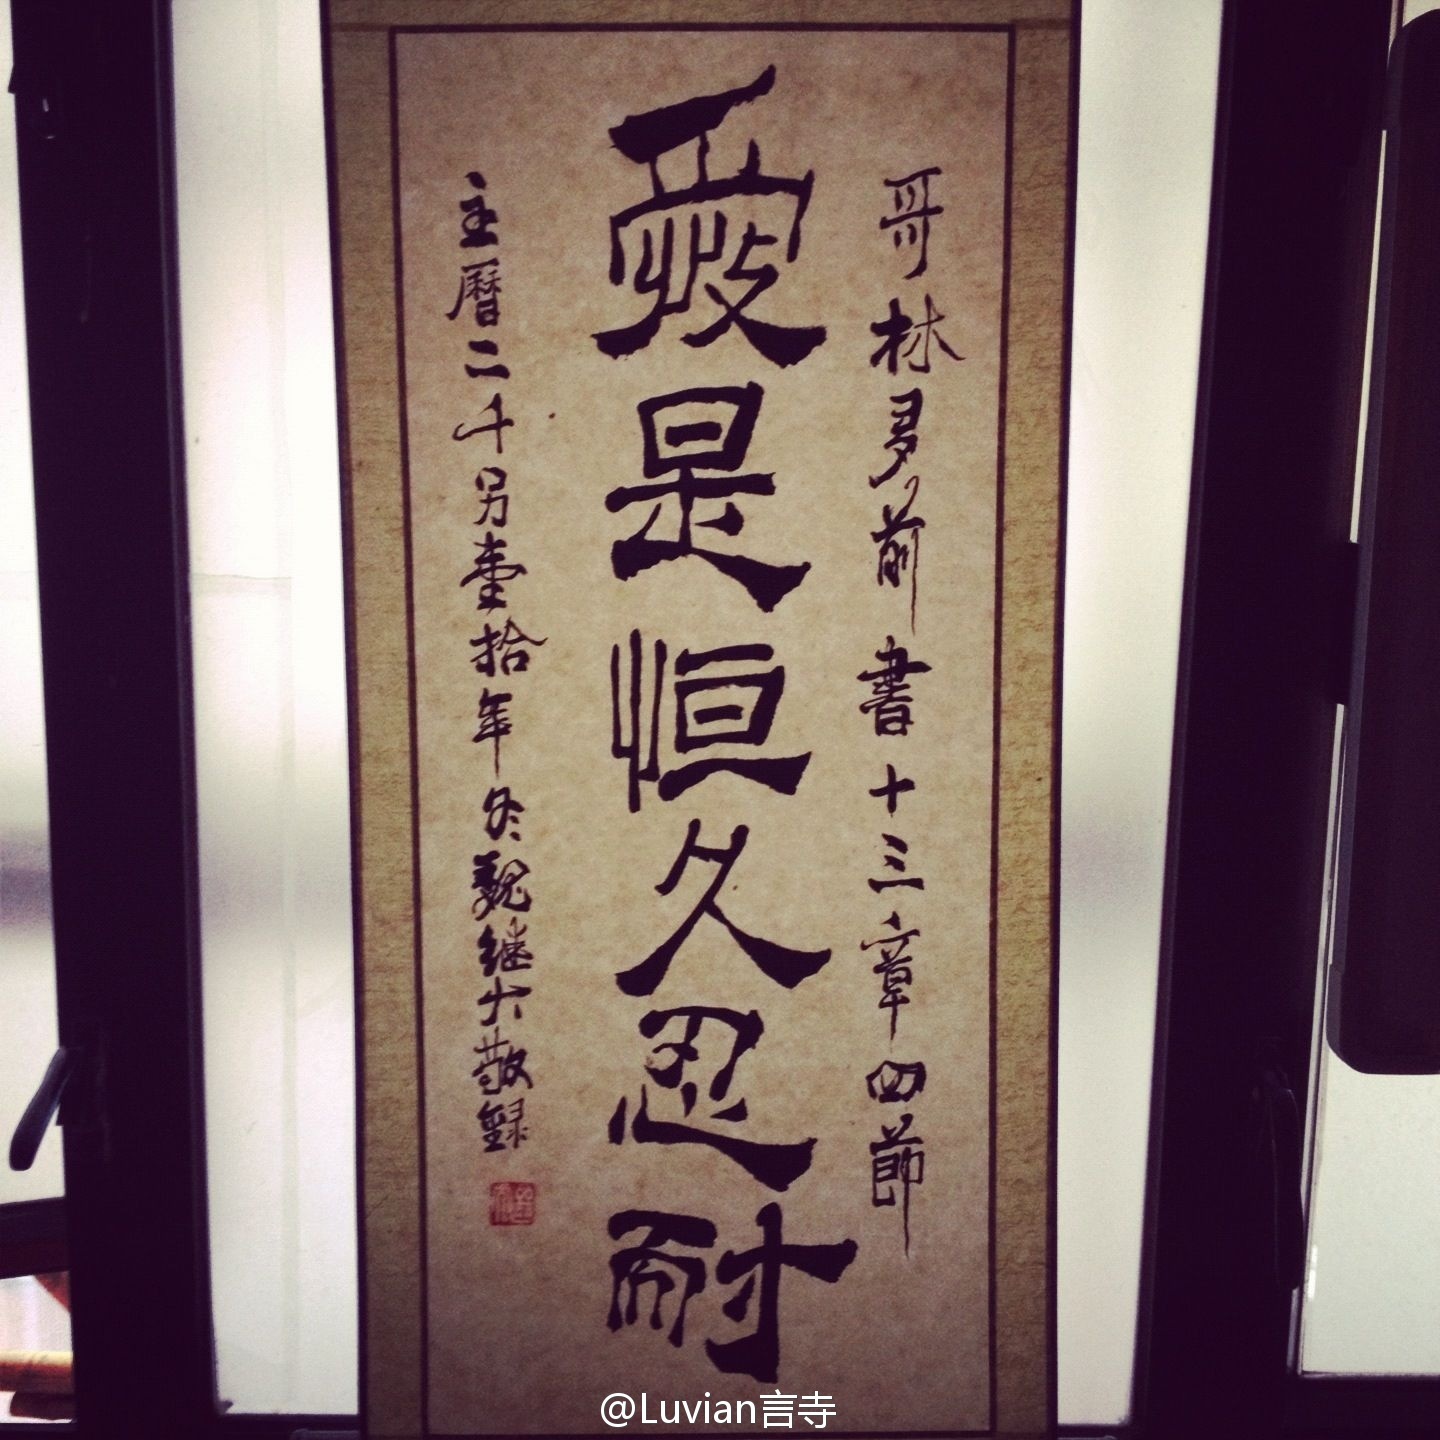 哥林多前書十三章四節
愛是恒久忍耐
主曆二千另壹拾年冬魏继大敬録
@Luvian言寺